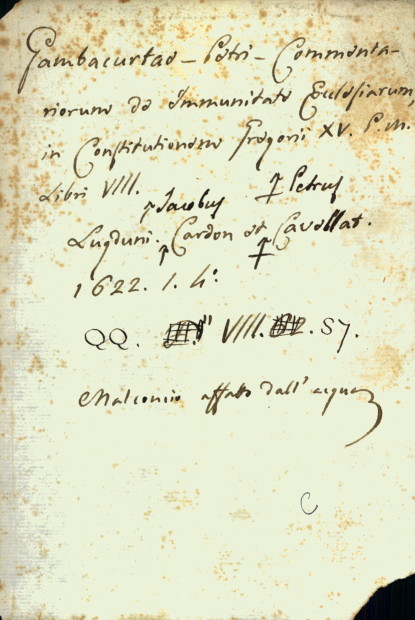 Gambacurtae - Petri - Commenta-
riorum de Immunitate Ecclesiarum,
in Constitutionem Gregorii XV. P. M.
Libri VIII.
Jacobus Petrus
Lugduni. Cardon et Cavellat.
1622. 1. 4°.
QQ. VIII. S7.
Malconcio affatto dall' acqua
C